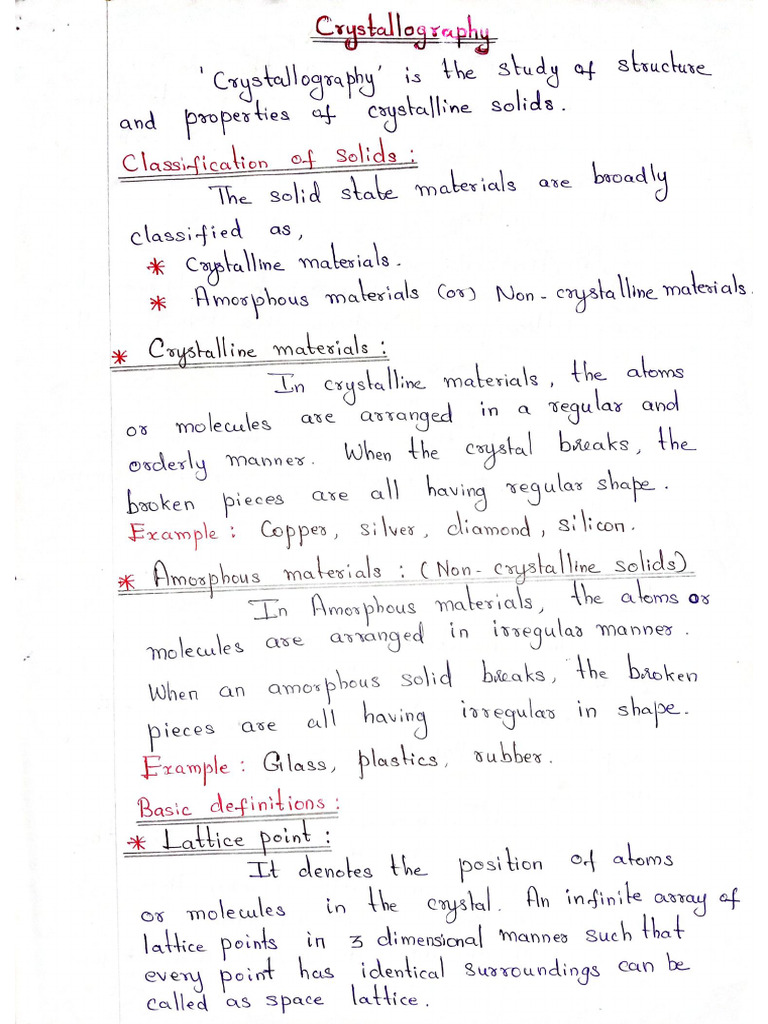 Crystallography
'Crystallography' is the study of structure
and properties of crystalline solids.
Classification of solids:
The solid state materials are broadly
classified as,
* Crystalline materials.
* Amorphous materials (or) Non-crystalline materials.
* Crystalline materials:
In crystalline materials, the atoms
or molecules are arranged in a regular and
orderly manner. When the crystal breaks, the
broken pieces are all having regular shape.
Example: Copper, silver, diamond, silicon.
* Amorphous materials: (Non-crystalline solids)
In Amorphous materials, the atoms or
molecules are arranged in irregular manner.
When an amorphous solid breaks, the broken
pieces are all having irregular in shape.
Example: Glass, plastics, rubber.
Basic definitions:
* Lattice point:
It denotes the position of atoms
or molecules in the crystal. An infinite array of
lattice points in 3 dimensional manner such that
every point has identical surroundings can be
called as space lattice.